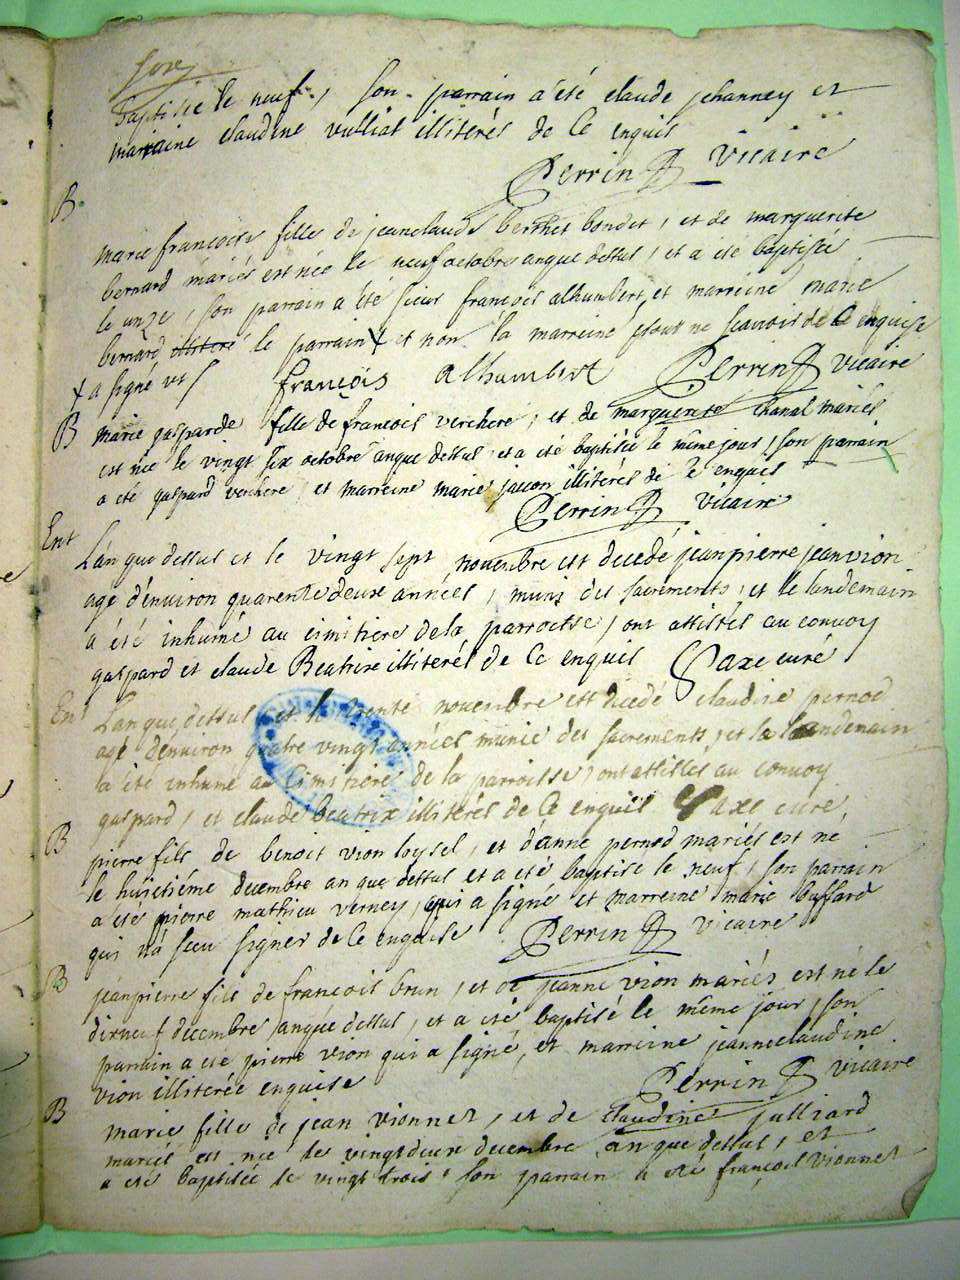 Baptisée le neuf, son parrain a été claude jehanney et
marraine claudine vulliat illiterés de ce enquis
Perrin vicaire
B
marie francoise fille de jeanclaude berthet bondet, et de marguerite
bernard mariés est née le neuf octobre an que dessus, et a été baptisée
le unze, son parrain a été sieur francois alhumbert, et marreine marie
bernard illiteré le parrain X et non la marreine pour ne scavoir de ce enquise
X a signé vt françois alhumbert Perrin vicaire
B marie gasparde fille de francois verchere, et de marguerite chanal mariés
est née le vingt six octobre an que dessus, et a été baptisée le même jour, son parrain
a été gaspard verchere, et marreine marie jaccon illiterés de ce enquis
Perrin vicaire
Ent L'an que dessus et le vingt sept novembre est decedé jeanpierre jeanvion
agé d'environ quarente deux années, munis des sacrements, et le landemain
a été inhumé au cimitiere de la parroisse, ont assistés au convoy
gaspard et claude Beatrix illiterés de ce enquis Saxe curé
Ent L'an que dessus et le trente novembre est decedé claudine pernod
agé d'environ quatre vingt années munie des sacrements, et le landemain
a été inhumé au cimitiere de la parroisse, ont assistés au convoy
gaspard, et claude beatrix illiterés de ce enquis Saxe curé
B pierre fils de benoit vion loysel, et d'anne pernod mariés est né
le huitiéme decembre an que dessus et a été baptisé le neuf, son parrain
a été pierre mathieu verney, qui a signé et marreine marie buffard
qui n'a sceu signer de ce enquise Perrin vicaire
B jeanpierre fils de francois brun, et de jeanne vion mariés est né le
dixneuf decembre an que dessus, et a été baptisé le même jour, son
parrain a été pierre vion qui a signé, et marreine jeanneclaudine
vion illiterée enquise Perrin vicaire
B marie fille de jean vionnet, et de claudine julliard
mariés est née le vingtdeux decembre an que dessus, et
a été baptisée le vingt trois son parrain a été françois vionnet